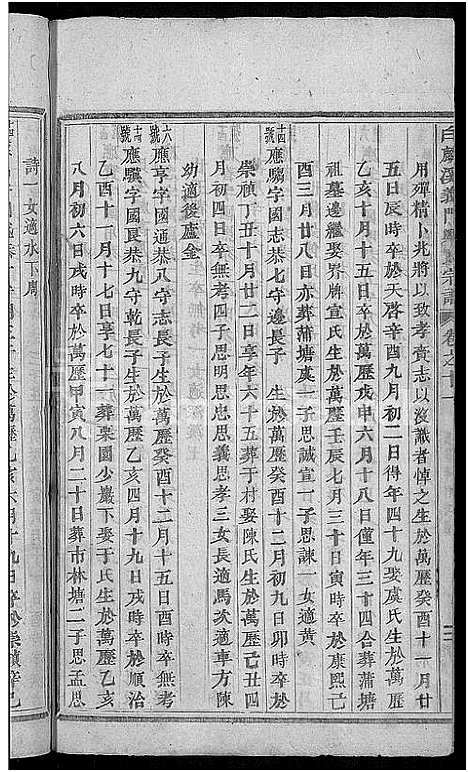 白麟溪義門鄭氏宗譜 卷之廿一
用殫精卜兆將以致孝賫志以沒識者悼之生於萬歷癸酉十一月廿
五日辰時卒於天啓辛酉九月初二日得年四十九娶虞氏生於萬歷
乙亥十月十五日卒於萬歷戊申六月十八日僅年三十四合葬蒲塘
祖墓邊繼娶界牌宣氏生於萬歷壬辰七月三十日寅時卒於康熙己
酉三月廿八日亦葬蒲塘虞一子思誠宣一子思諫一女適黃
十四號應驦字國泰恭七守志次子生於萬歷癸酉十二月初九日卯時卒於
崇禎丁丑十月廿二日享年六十五葬于村娶陳氏生於萬歷己丑四
月初四日卒無考四子思明思忠思義思孝三女長適馬次適車方陳
幼適後盧金
六號應亨字國通恭八守志長子生於萬歷癸酉十二月十五日酉時卒無考
十號應驥字國良恭九守乾長子生於萬歷乙亥四月十九日戌時卒於順治
乙酉十一月十七日享年七十一葬栗園少巖下娶于氏生於萬歷乙亥
八月初六日戌時卒於萬歷甲寅八月二十日葬市林塘二子思孟思
詩一女適水下周